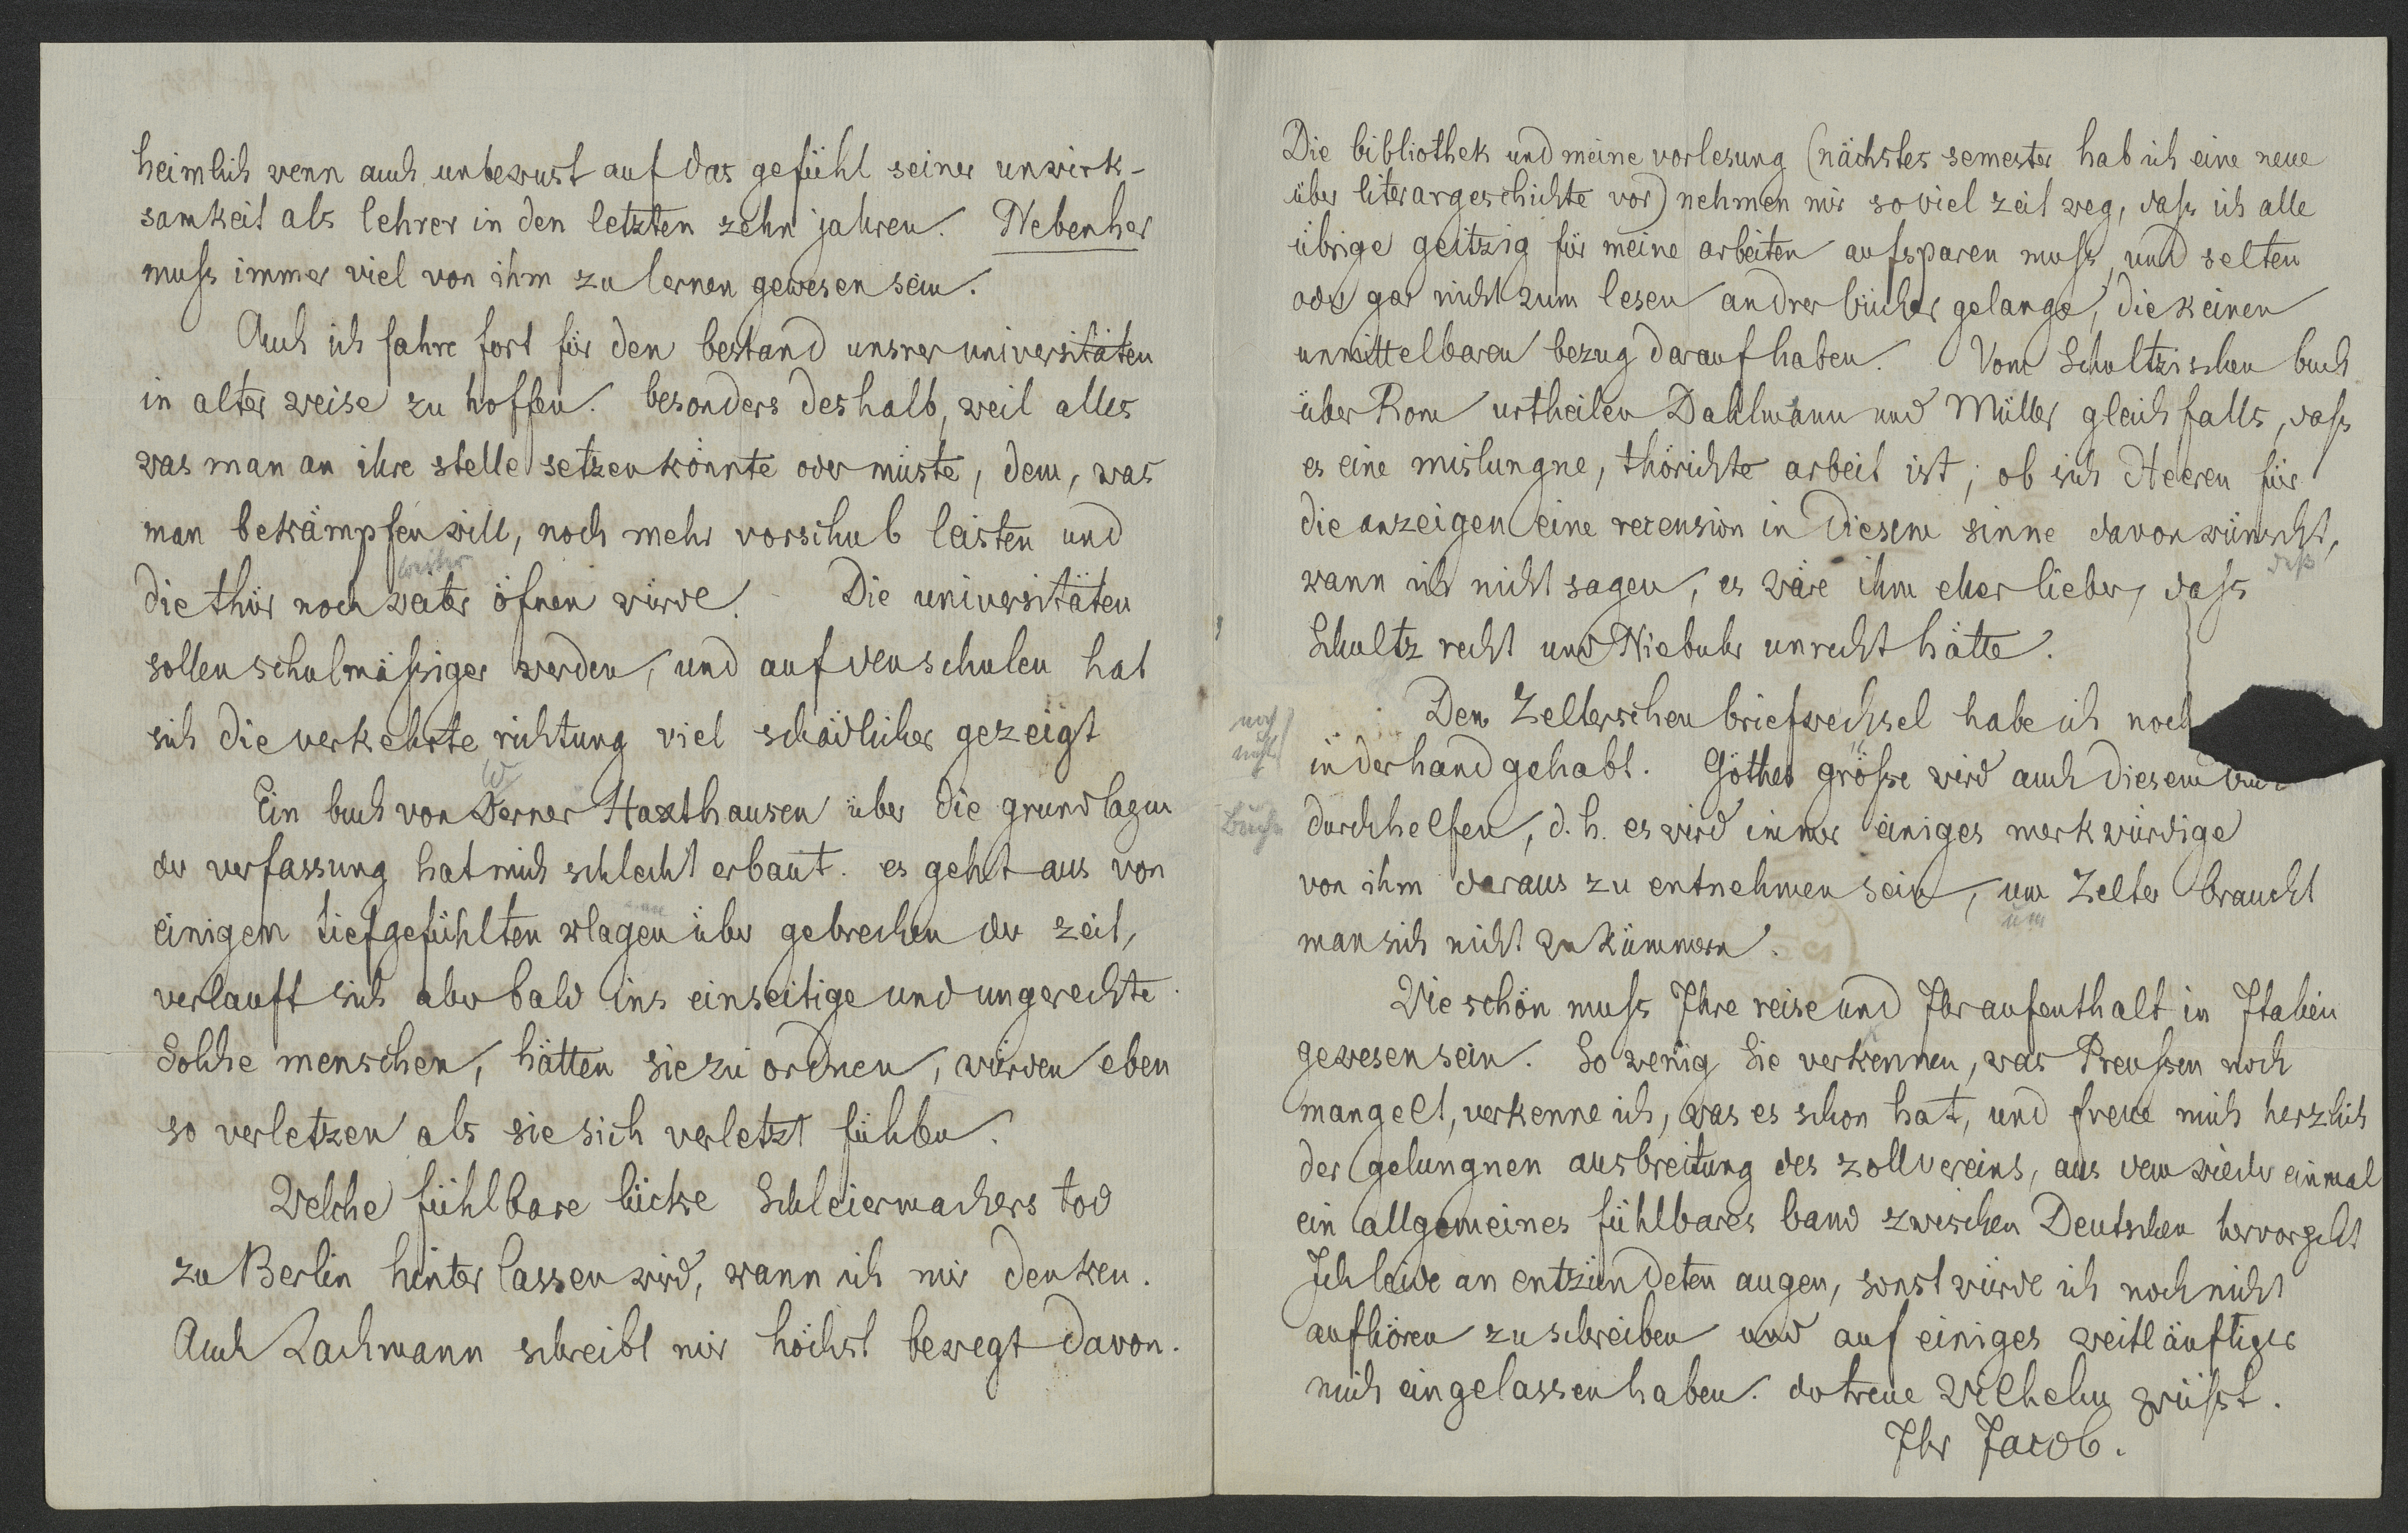 heimlich wenn auch unbewust auf das gefühl seiner unwirk-
samkeit als lehrer in den letzten zehn jahren. Nebenher
muſs immer viel von ihm zu lernen gewesen sein.
Auch ich fahre fort für den bestand unsrer universitäten
in alter weise zu hoffen. besonders deshalb, weil alles
was man an ihre stelle setzen könnte oder müste, dem, was
man bekämpfen will, noch mehr vorschub leisten und
weiter
die thür noch weiter öfnen würde. Die universitäten
sollen schulmäſsiger werden, und auf den schulen hat
sich die verkehrte richtung viel schädlicher gezeigt
W
Ein buch von Werner Haxthausen über die grundlagen
der verfassung hat mich schlecht erbaut. es geht aus von
einigen tiefgefühlten klagen über gebrechen der zeit,
verlauft sich aber bald ins einseitige und ungerechte.
Solche menschen, hätten sie zu ordnen, würden eben
so verletzen als sie sich verletzt fühlen.
Welche fühlbare lücke Schleiermachers tod
zu Berlin hinterlassen wird, kann ich mir denken.
Auch Lachmann schreibt mir höchst bewegt davon.
Die bibliothek und meine vorlesung (nächstes semester hab ich eine neue
über literargeschichte vor) nehmen mir so viel zeit weg, daſs ich alle
übrige geitzig für meine arbeiten aufsparen muſs, und selten
oder gar nicht zum lesen andrer bücher gelange, die keinen
unmittelbaren bezug darauf haben. Vom Schultzischen buch
über Rom urtheilen Dahlmann und Müller gleichfalls, daſs
es eine mislungne, thörichte arbeit ist; ob sich Heeren für
die anzeigen eine recension in diesem sinne davon wünscht,
kann ich nicht sagen, es wäre ihm eher lieber, daſs
daß
Schultz recht und Niebuhr unrecht hätte.
Den Zelterschen briefwechsel habe ich noch
noch
nicht
in der hand gehabt. Göthes gröſse wird auch diesem
Buche
durchhelfen, d. h. es wird immer einiges merkwürdige
von ihm daraus zu entnehmen sein, um Zelter braucht
um
man sich nicht zu kümmern.
Wie schön muſs Ihre reise und Ihr aufenthalt in Italien
gewesen sein. So wenig Sie verkennen, was Preuſsen noch
mangelt, verkenne ich, was es schon hat, und freue mich herzlich
der gelungnen ausbreitung des zollvereins, aus dem wieder einmal
ein allgemeines fühlbares band zwischen Deutschen hervorgeht
Ich leide an entzündeten augen, sonst würde ich noch nicht
aufhören zu schreiben und auf einiges weitläuftiger
mich eingelassen haben. der treue Wilhelm grüſst.
Ihr Jacob.